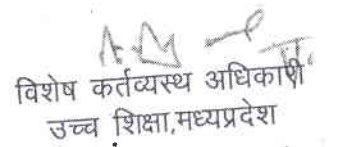 विशेष कर्तव्यस्थ अधिकारी
उच्च शिक्षा,मध्यप्रदेश